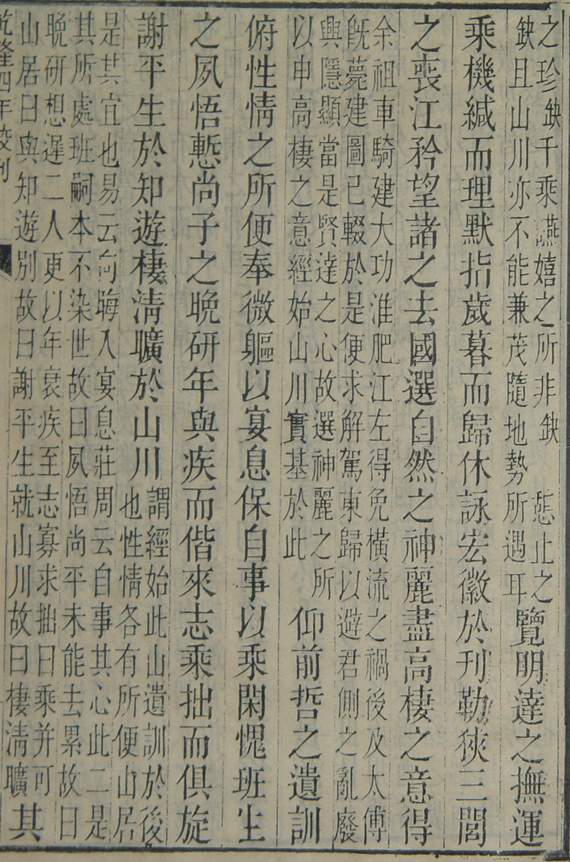 之珍缺千乘讌嬉之所非缺 憇止之
缺且山川亦不能兼茂隨地勢所遇耳
覽明達之撫運
乘機緘而理默指歲暮而歸休詠宏徽於刋勒狹三閭
之喪江矜望諸之去國選自然之神麗盡高棲之意得
余祖車騎建大功淮肥江左得免橫流之禍後及太傅
旣薨建圖已輟於是便求解駕東歸以避君側之亂廢
興隱顯當是賢達之心故選神麗之所
以申高棲之意經始山川實基於此
仰前哲之遺訓
俯性情之所便奉微軀以宴息保自事以乘閑愧班生
之夙悟慙尚子之晚研年與疾而偕來志乘拙而俱旋
謝平生於知遊棲淸曠於山川
謂經始此山遺訓於後
也性情各有所便山居
是其宜也易云向晦入宴息莊周云自事其心此二是
其所處班嗣本不染世故曰夙悟尚平未能去累故曰
晚研想遲二人更以年衰疾至志寡求拙曰乘并可
山居曰與知遊別故曰謝平生就山川故曰棲淸曠
其
乾隆四年校刊